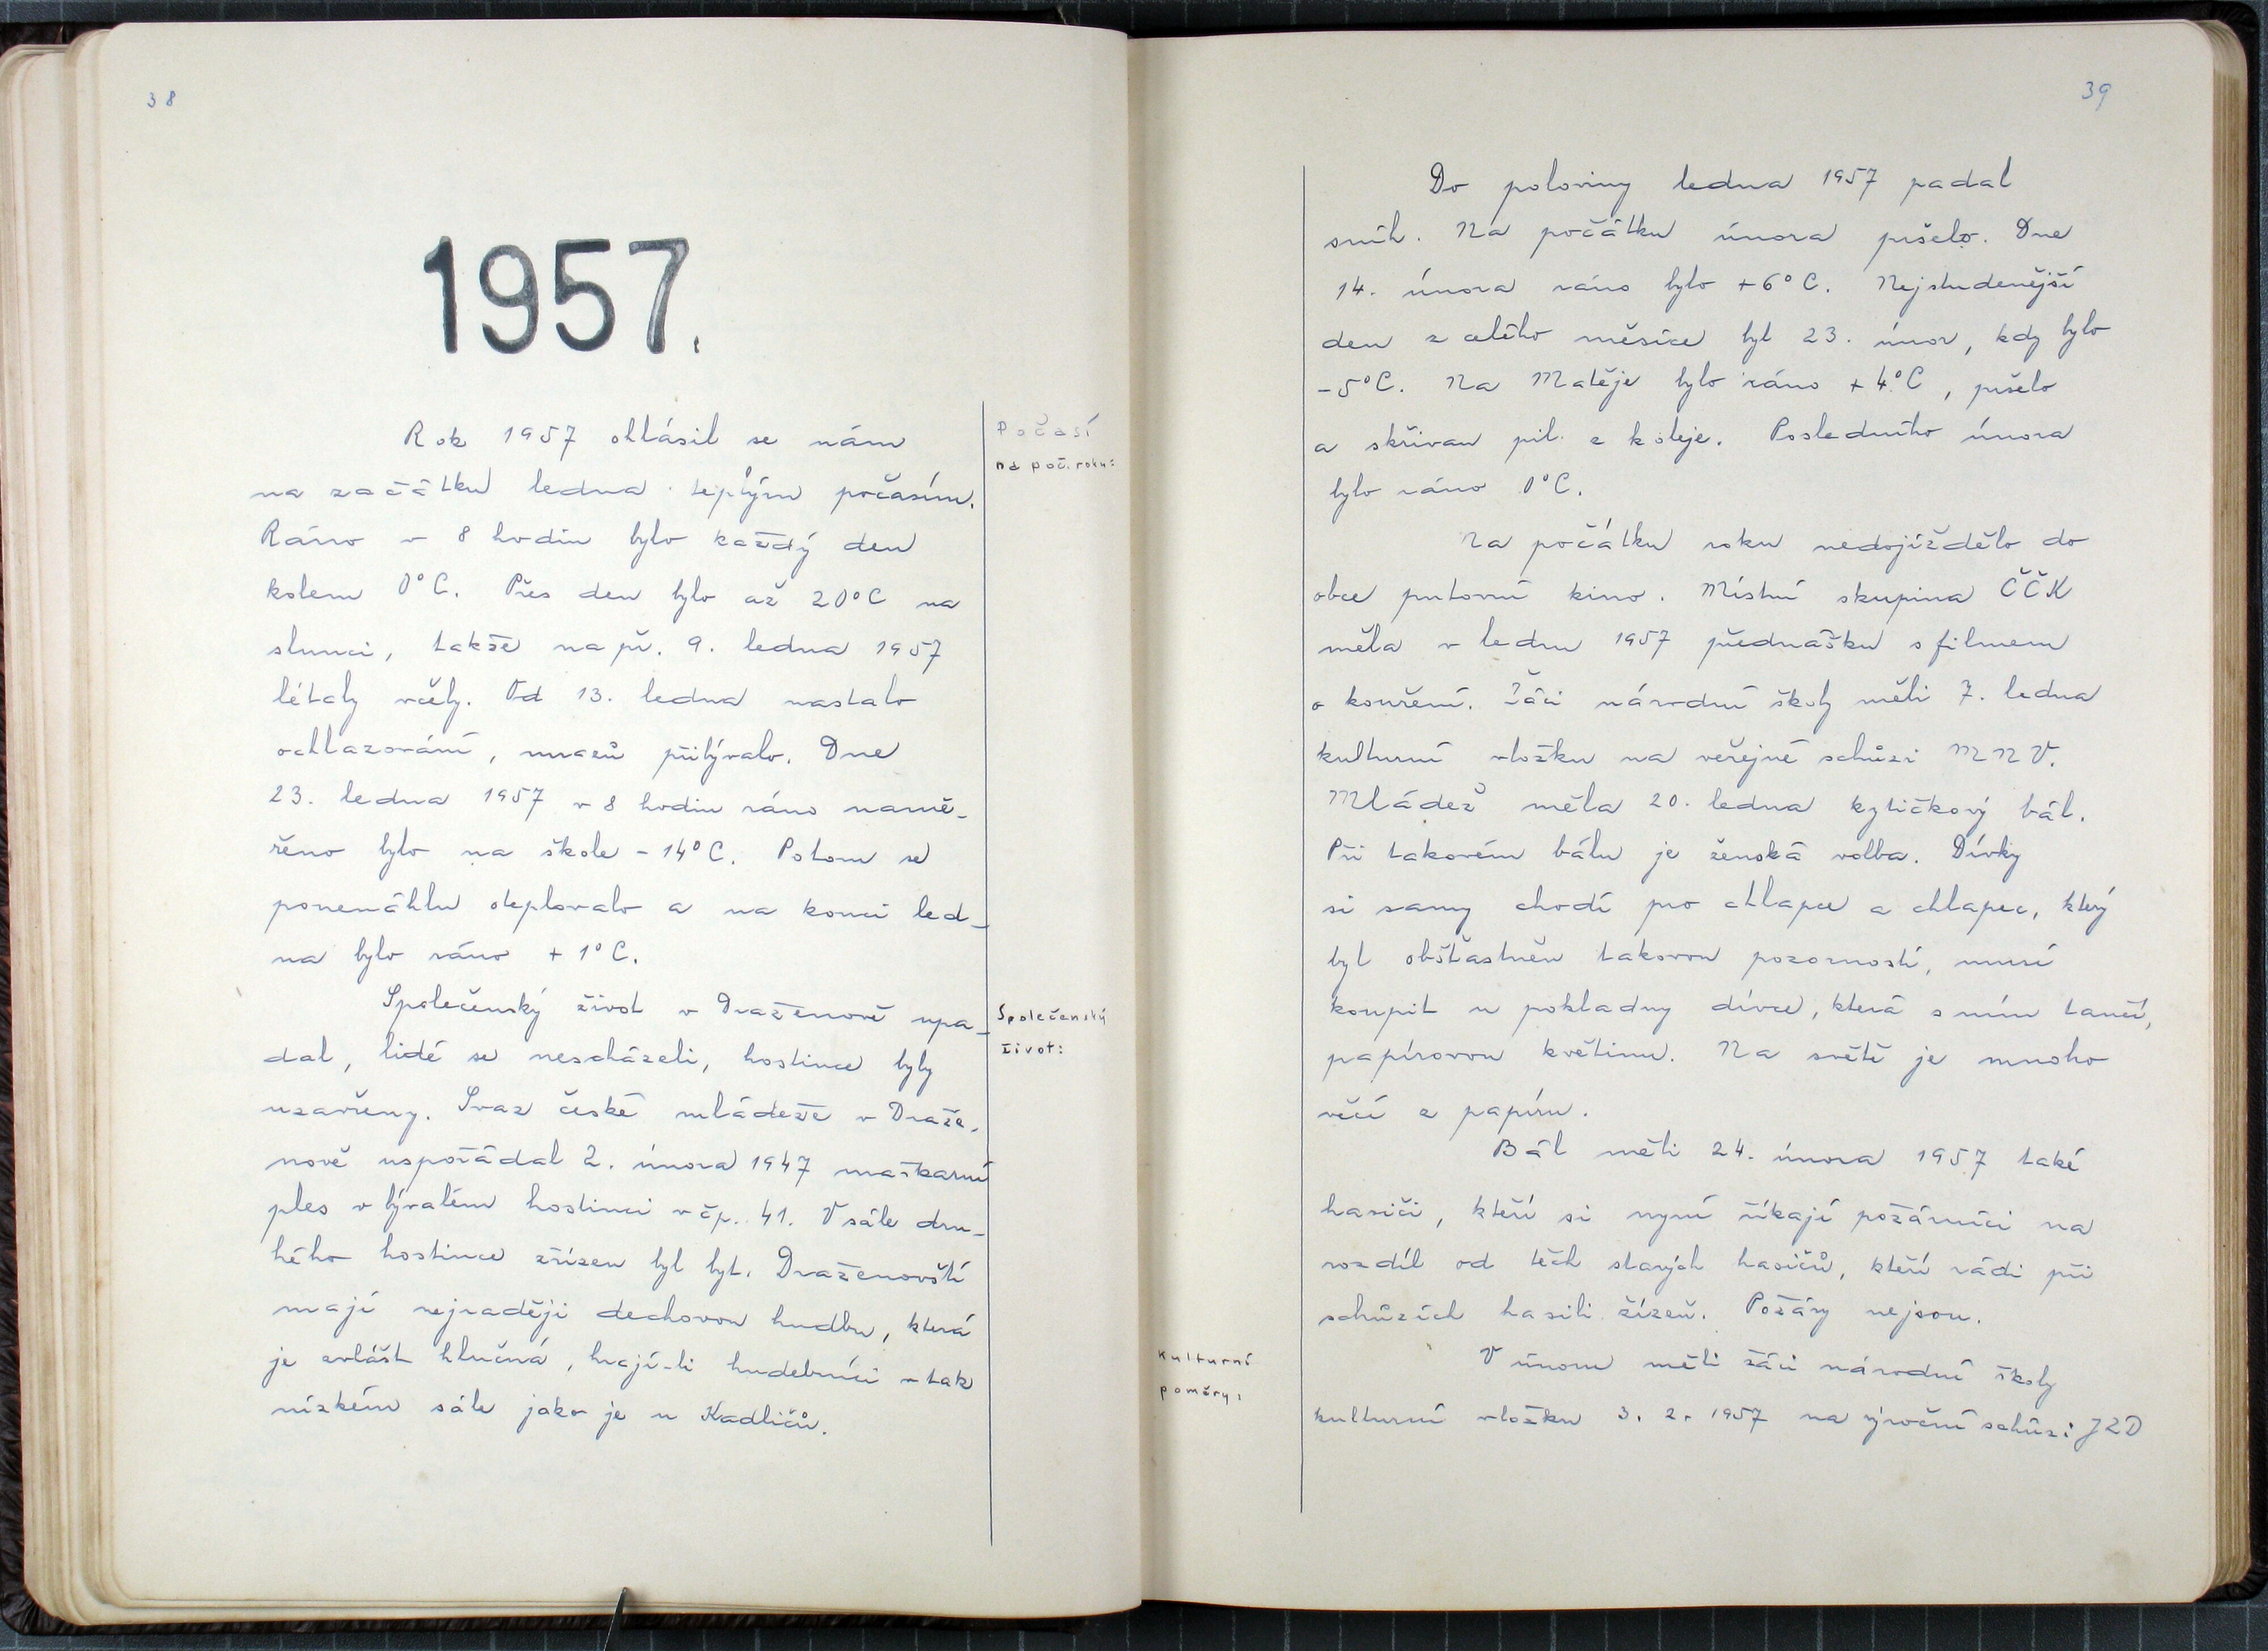 38
1957.
Počasí
na poč. roku:
Rok 1957 ohlásil se nám
na začátku ledna teplým počasím.
Ráno v 8 hodin bylo každý den
kolem 0°C. Přes den bylo až 20°C na
slunci, takže např. 9. ledna 1957
létaly včely. Od 13. ledna nastalo
ochlazování, mrazů přibývalo. Dne
23. ledna 1957 v 8 hodin ráno namě-
řeno bylo na škole -14°C. Potom se
ponenáhlu oteplovalo a na konci led-
na bylo ráno +1°C.
Společenský
život:
Společenský život v Draženově upa-
dal, lidé se nescházeli, hostince byly
uzavřeny. Svaz české mládeže v Draže-
nově uspořádal 2. února 1947 maškarní
ples v bývalém hostinci v čp. 41. V sále dru-
hého hostince zřízen byl byt. Draženovští
mají nejraději dechovou hudbu, která
je zvlášt hlučná, hrají-li hudebníci v tak
nízkém sále jako je u Kadličů.
39
Do poloviny ledna 1957 padal
sníh. Na počátku února pršelo. Dne
14. února ráno bylo +6°C. Nejstudenější
den z celého měsíce byl 23. únor, kdy bylo
-5°C. Na Matěje bylo ráno +4°C, pršelo
a skřivan pil z koleje. Posledního února
bylo ráno 0°C.
Na počátku roku nedojíždělo do
obce putovní kino. Místní skupina ČČK
měla v lednu 1957 přednášku s filmem
o kouření. Žáci národní školy měli 7. ledna
kulturní vložku na veřejné schůzi MNV.
Mládež měla 20. ledna kytičkový bál.
Při takovém bálu je ženská volba. Dívky
si samy chodí pro chlapce a chlapec, který
byl obšťastněn takovou pozorností, musí
koupit u pokladny dívce, která s ním tančí,
papírovou květinu. Na světě je mnoho
věcí z papíru.
Bál měli 24. února 1957 také
hasiči, kteří si nyní říkají požárníci na
rozdíl od těch starých hasičů, kteří rádi při
schůzích hasili žízeň. Požáry nejsou.
Kulturní
poměry:
V únoru měli žáci národní školy
kulturní vložku 3. 2. 1957 na výroční schůzi JZD